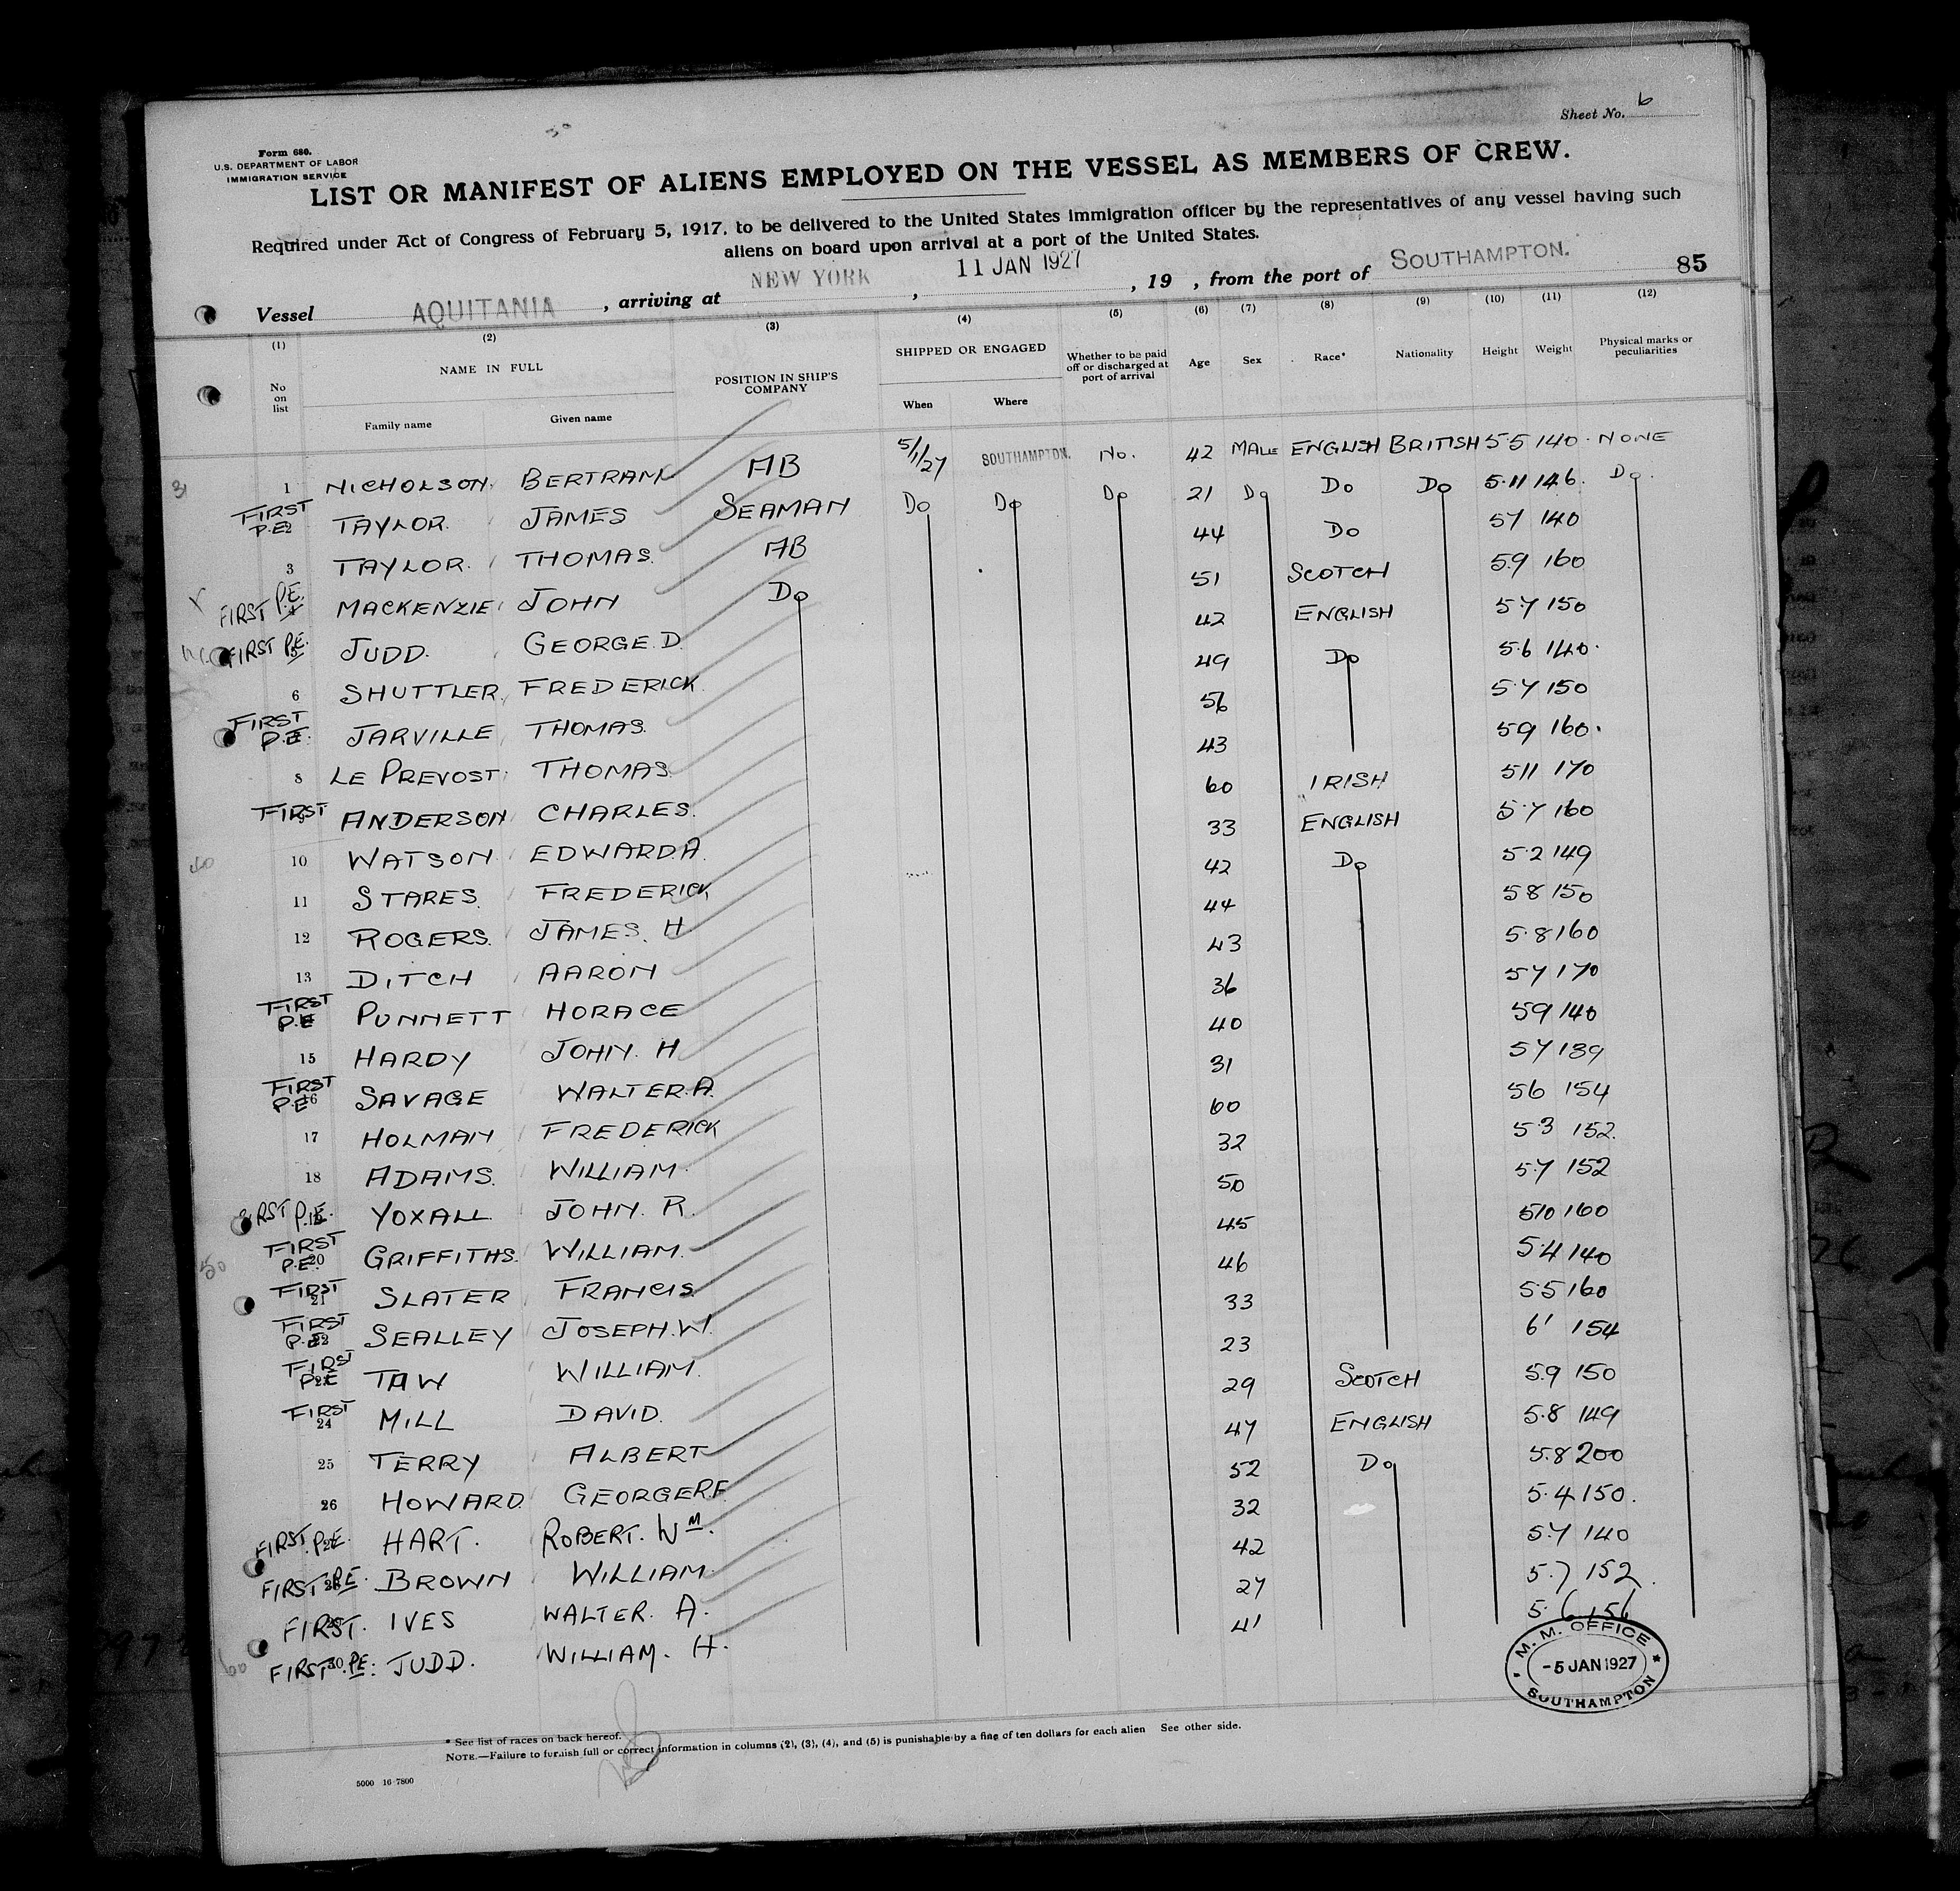 Sheet No. 6
Form 680.
U.S. DEPARTMENT OF LABOR
IMMIGRATION SERVICE
LIST OR MANIFEST OF ALIENS EMPLOYED ON THE VESSEL AS MEMBERS OF CREW.
Required under Act of Congress of February 5, 1917, to be delivered to the United States immigration officer by the representatives of any vessel having such
aliens on board upon arrival at a port of the United States.
Vessel AQUITANIA, arriving at NEW YORK, 11 JAN 1927, 19 , from the port of SOUTHAMPTON. 85
(1) (2) (3) (4) (5) (6) (7) (8) (9) (10) (11) (12)
No on list NAME IN FULL POSITION IN SHIP'S COMPANY SHIPPED OR ENGAGED Whether to be paid off or discharged at port of arrival Age Sex Race* Nationality Height Weight Physical marks or peculiarities
Family name Given name When Where
1 NICHOLSON BERTRAM AB 5/1/27 SOUTHAMPTON. No. 42 MALE ENGLISH BRITISH 5.5 140 NONE
FIRST P.E. 2 TAYLOR JAMES SEAMAN Do Do Do 21 Do Do Do 5.11 146. Do
3 TAYLOR THOMAS. AB 44 Do 57 140
FIRST P.E. 4 MACKENZIE JOHN Do 51 SCOTCH 5.9 160
FIRST P.E. 5 JUDD. GEORGE. D. 42 ENGLISH 5.7 150
6 SHUTTLER FREDERICK. 49 Do 5.6 140.
FIRST P.E. JARVILLE THOMAS. 56 5.7 150
8 LE PREVOST THOMAS. 43 59 160.
FIRST 9 ANDERSON CHARLES. 60 IRISH 511 170
10 WATSON EDWARD A. 33 ENGLISH 5.7 160
11 STARES. FREDERICK 42 Do 5.2 149
12 ROGERS. JAMES. H 44 58 150
13 DITCH AARON 43 5.8 160
FIRST P.E PUNNETT HORACE 36 57 170
15 HARDY JOHN. H 40 59 140
FIRST P.E 16 SAVAGE WALTER. A. 31 57 139
17 HOLMAN FREDERICK 60 56 154
18 ADAMS. WILLIAM. 32 5.3 152.
P.E. YOXALL JOHN. R. 50 5.7 152
FIRST P.E. 20 GRIFFITHS. WILLIAM. 45 510 160
FIRST 21 SLATER FRANCIS. 46 5.4 140
FIRST P.E. 22 SEALLEY JOSEPH. W. 33 5.5 160
FIRST P.E TAW WILLIAM. 23 6' 154
FIRST 24 MILL DAVID. 29 SCOTCH 5.9 150
25 TERRY ALBERT 47 ENGLISH 5.8 149
26 HOWARD GEORGE R.F. 52 Do 5.8 200
FIRST P.E. HART. ROBERT. Wᴹ. 32 5.4 150.
FIRST P.E. BROWN WILLIAM. 42 5.7 140
FIRST. IVES WALTER. A. 27 5.7 152.
FIRST 30 P.E. JUDD. WILLIAM. H. 41 5.6 156
M. M. OFFICE
-5 JAN 1927
SOUTHAMPTON
* See list of races on back hereof.
NOTE.—Failure to furnish full or correct information in columns (2), (3), (4), and (5) is punishable by a fine of ten dollars for each alien See other side.
5000 16-7800